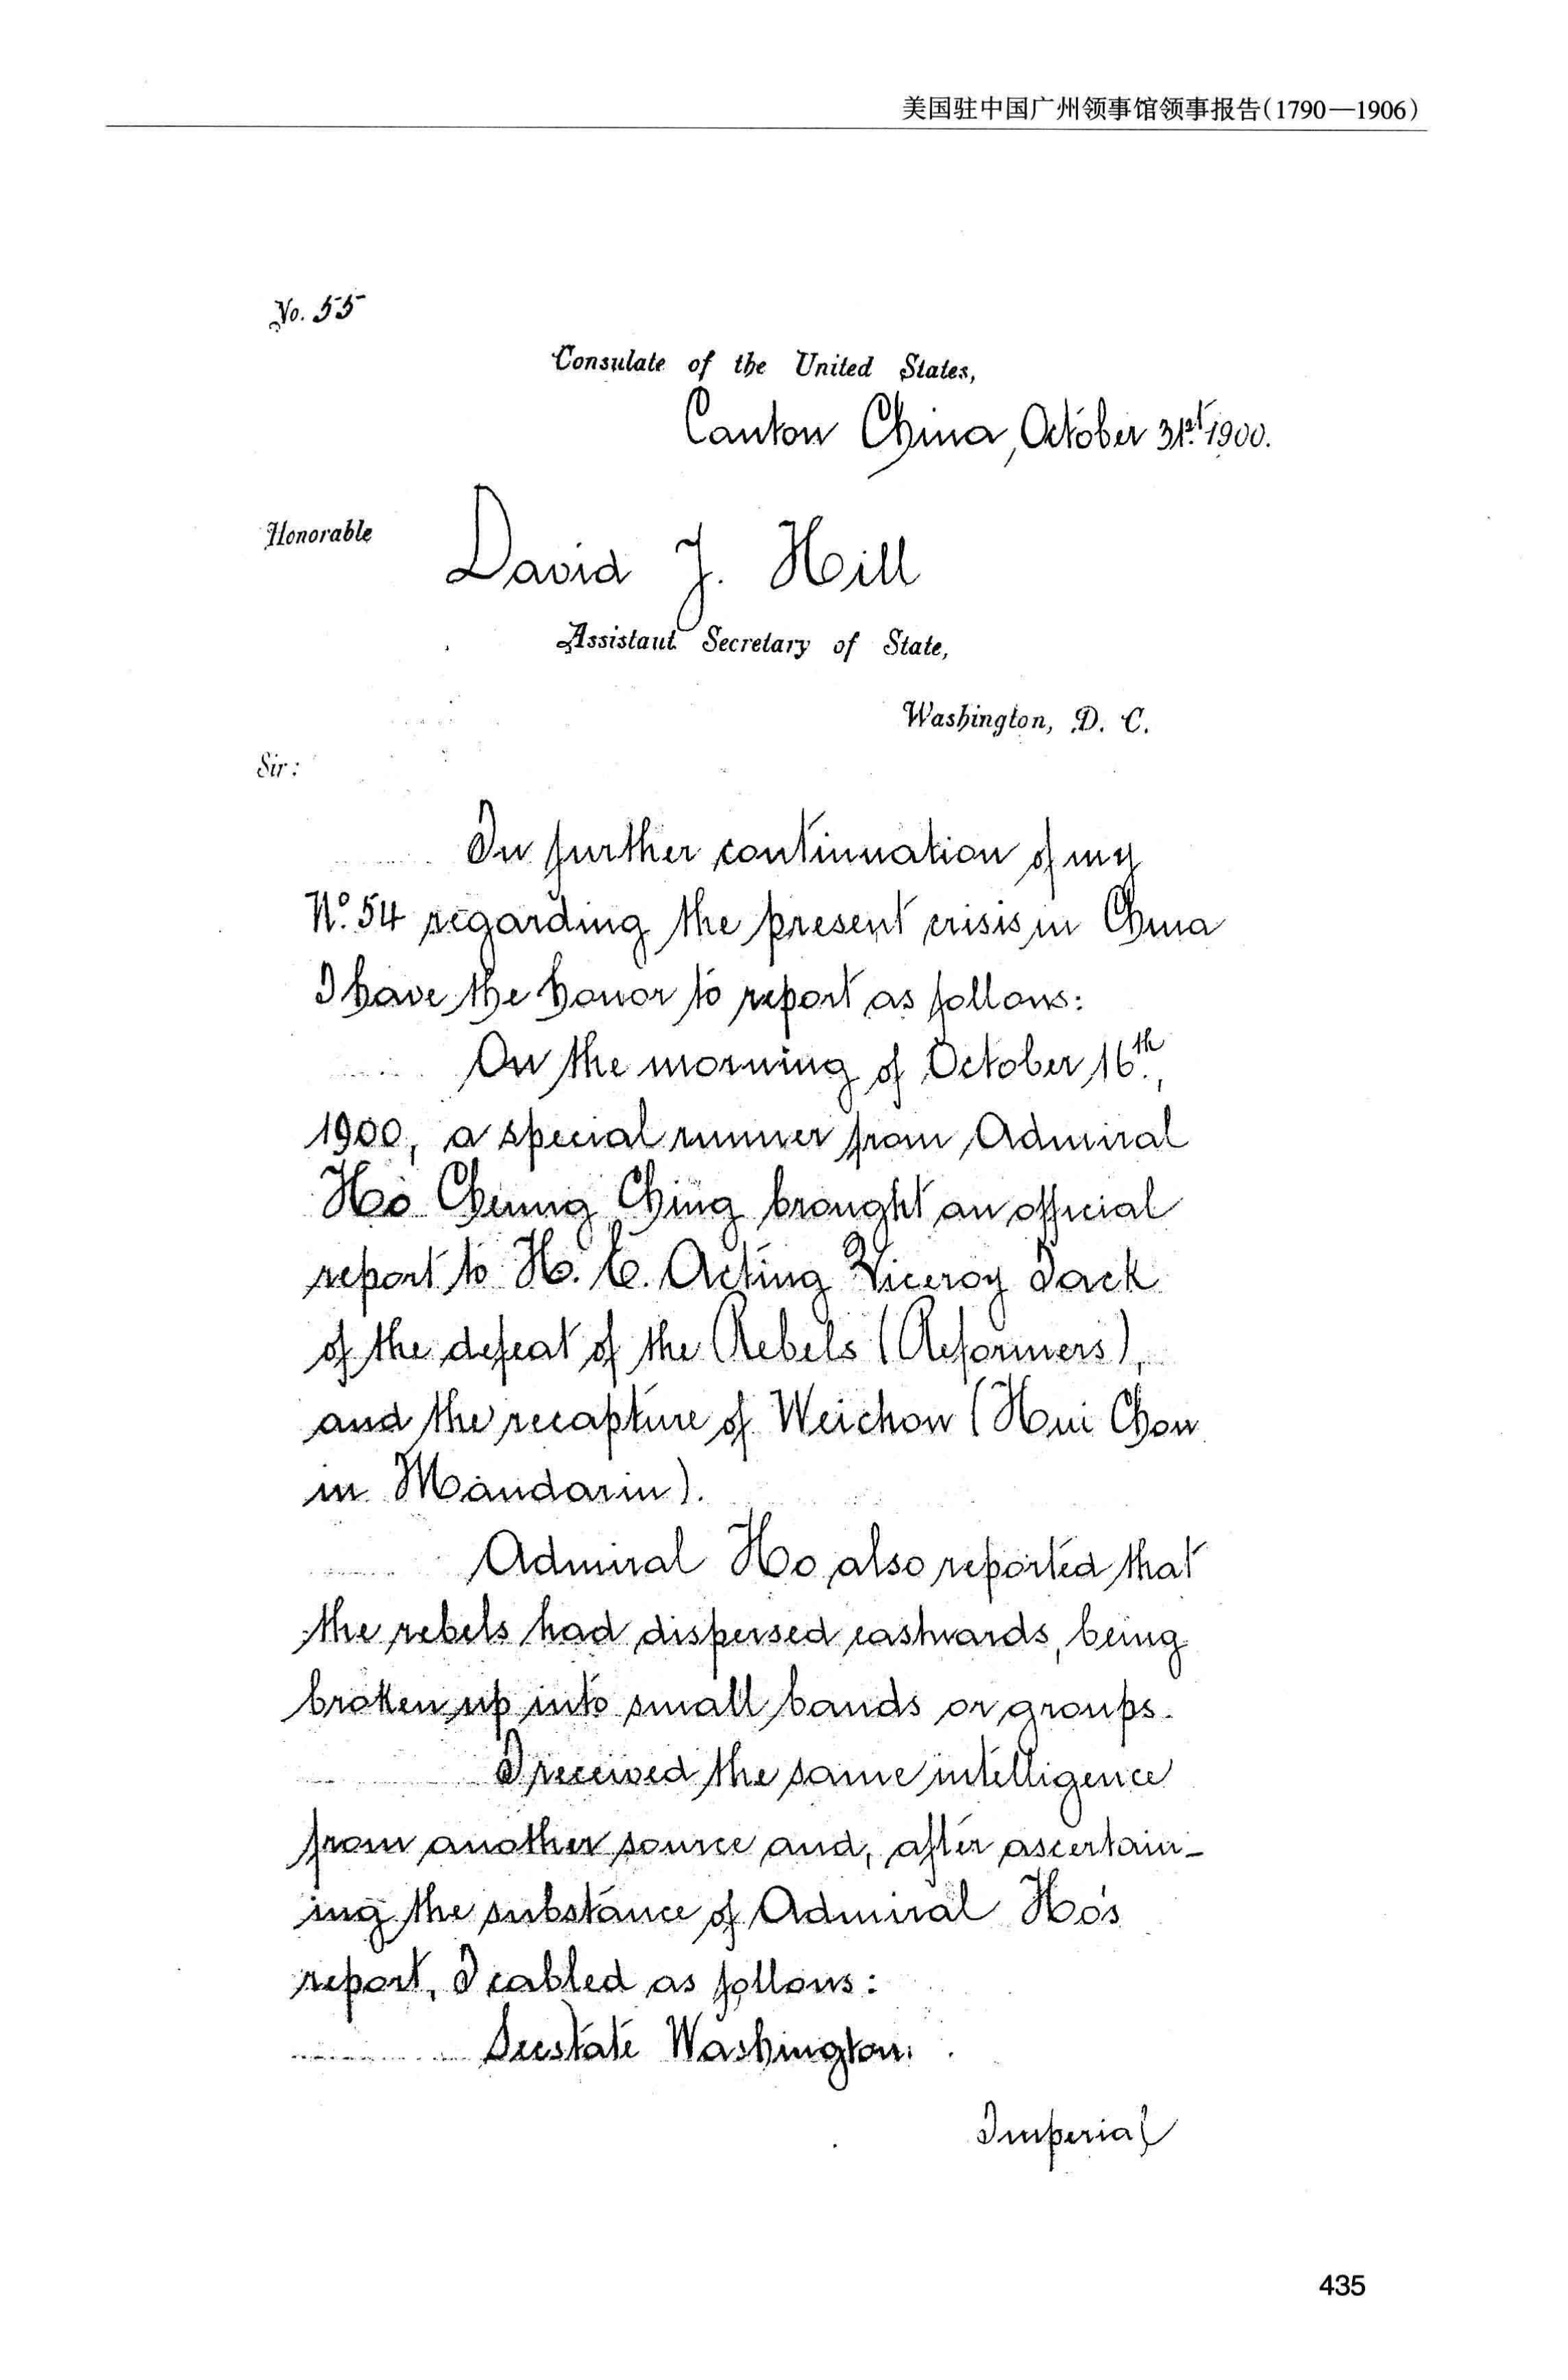 美国驻中国广州领事馆领事报告(1790—1906)
No. 55
Consulate of the United States,
Canton China, October 31st 1900.
Honorable
David J. Hill
Assistant Secretary of State,
Washington, D. C.
Sir:
In further continuation of my
No. 54 regarding the present crisis in China
I have the honor to report as follows:
On the morning of October 16th,
1900, a special runner from Admiral
Ho Cheung Ching brought an official
report to H. E. Acting Viceroy Tack
of the defeat of the Rebels (Reformers),
and the recapture of Weichow (Hui Chow
in Mandarin).
Admiral Ho also reported that
the rebels had dispersed eastwards, being
broken up into small bands or groups.
I received the same intelligence
from another source and, after ascertain-
ing the substance of Admiral Ho's
report, I cabled as follows:
Secstate Washington.
Imperial
435